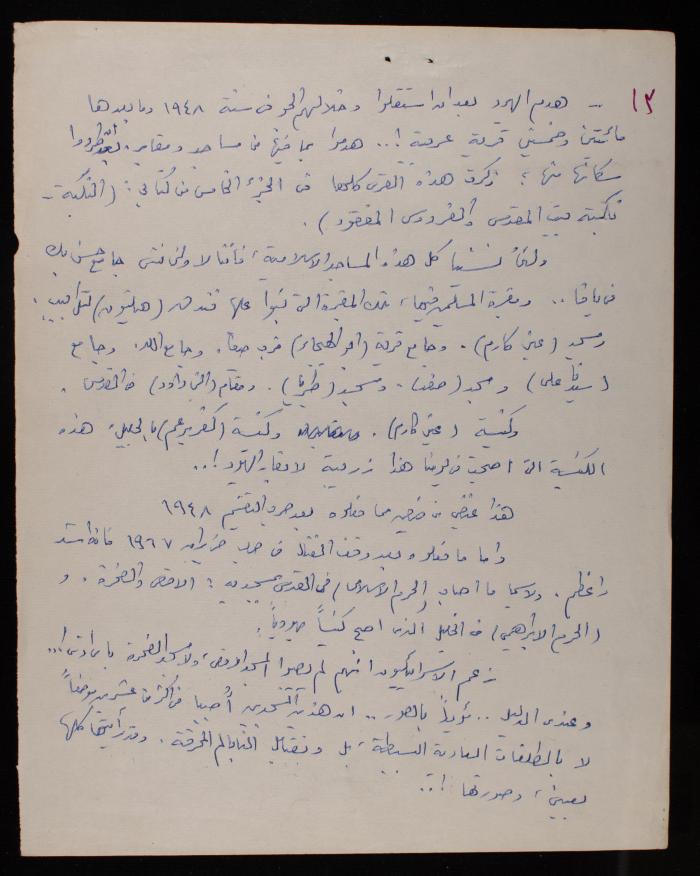 ١٣
- هدم اليهود بعد ان استقلوا وخلا لهم الجو في سنة ١٩٤٨ وما بعدها
مائتين وخمسين قرية عربية !.. هدموا بما فيها من مساجد ومقابر، بعد ان طردوا
سكانها منها؛ ذكرت هذه القرى كلها في الجزء الخامس من كتابي: (النكبة -
نكبة بيت المقدس والفردوس المفقود).
ولئن نسينا كل هذه المساجد الاسلامية، فاننا لا ولن ننسى جامع حسن بك
في يافا .. ومقبرة المسلمين فيها، تلك المقبرة التي بنوا عليها فندق (هيلتون) لتل ابيب.
ومسجد (عين كارم). وجامع قرية (ام) قرب صفد. وجامع اللد. وجامع
(سيدنا علي) ومسجد (صفد). ومسجد (طبريا). ومقام (النبي داود) في القدس.
وكنيسة (عين كارم). وكنيسة (كفر برعم) بالجليل، هذه
الكنيسة التي اصبحت في يومنا هذا زريبة لابقار اليهود !..
هذا غيض من فيض مما فعلوه بعد حرب التقسيم ١٩٤٨
واما ما فعلوه بعد وقف القتال في حرب حزيران ١٩٦٧ فانه اشد
واعظم. ولا سيما ما اصاب (الحرم الاسلامي) في القدس بمسجديه: الاقصى والصخرة. و
(الحرم الابراهيمي) في الخليل الذي اصبح كنيساً يهودياً.
زعم الاسرائيليون انهم لم يصيبوا المسجد الاقصى، ولا مسجد الصخرة باي اذى !...
وعندي الدليل .. مؤيداً بالصور .. ان هذين المسجدين أصيبا في اكثر من عشرين موضعاً
لا بالطلقات العادية البسيطة، بل وبقنابل النابالم المحرقة. وقد رأيتها كلها
بعيني، وصورتها !..